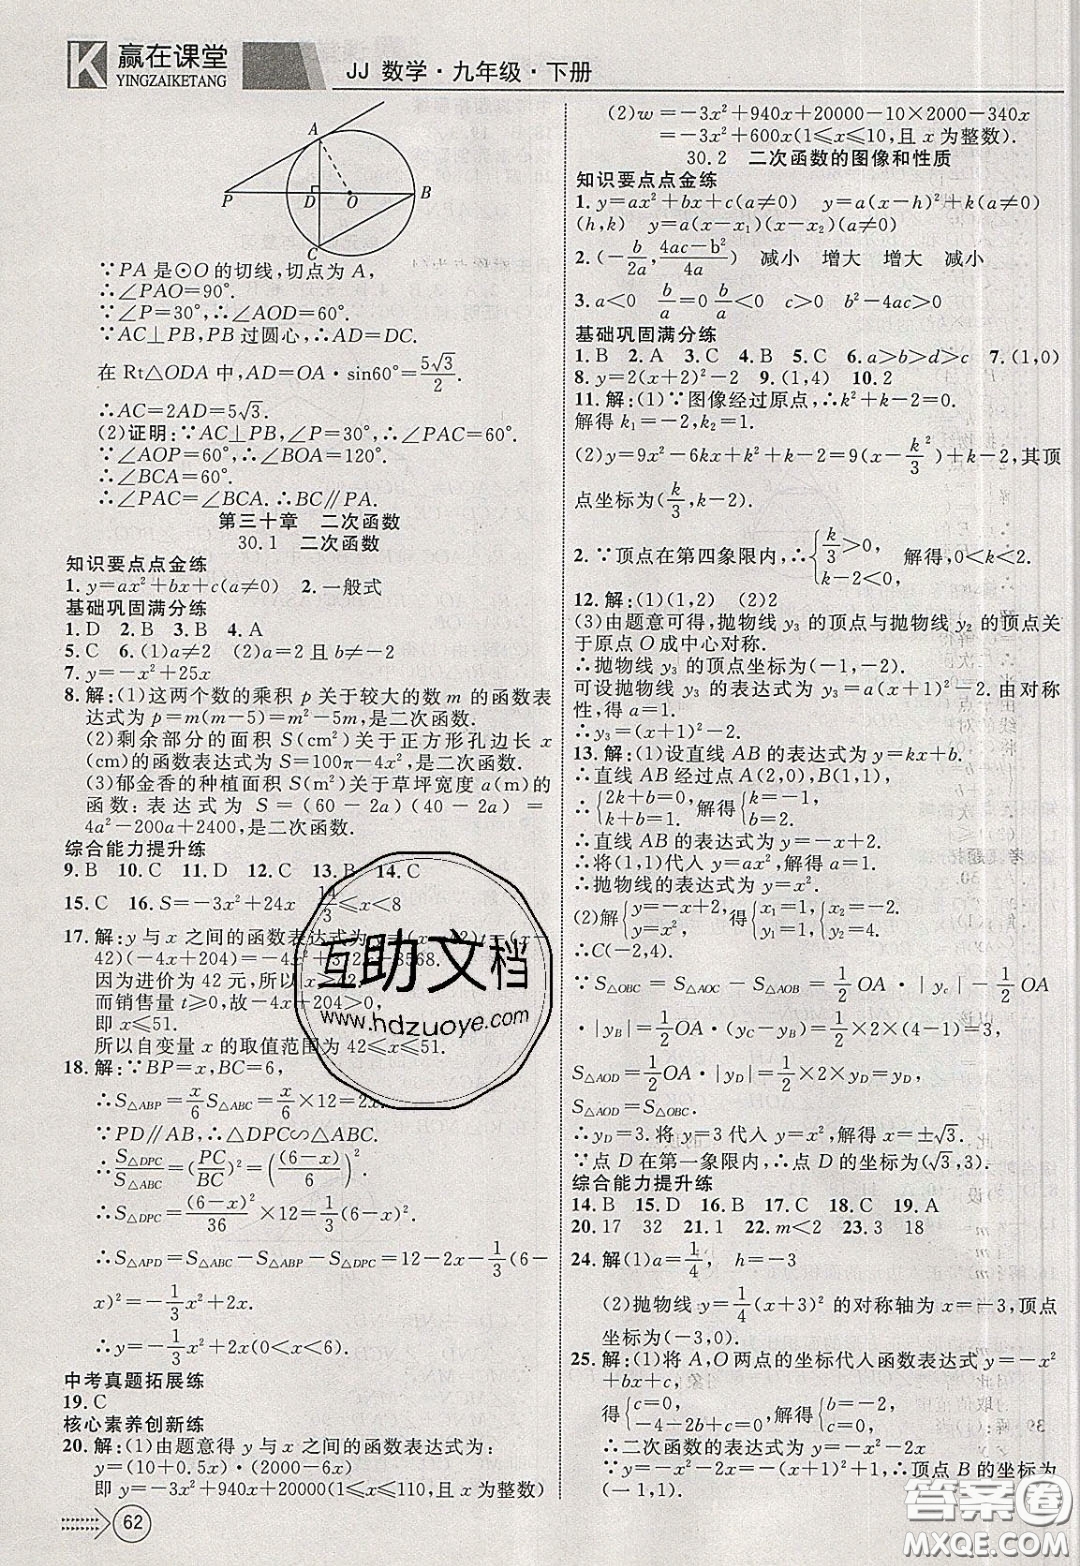 K 赢在课堂
YINGZAIKETANG
JJ 数学·九年级·下册
A
P D O B
C
∵PA 是⊙O 的切线,切点为 A,
∴∠PAO=90°.
∵∠P=30°,∴∠AOD=60°.
∵AC⊥PB,PB 过圆心,∴AD=DC.
在 Rt△ODA 中,AD=OA·sin60°=5√3/2.
∴AC=2AD=5√3.
(2)证明:∵AC⊥PB,∠P=30°,∴∠PAC=60°.
∵∠AOP=60°,∴∠BOA=120°.
∴∠BCA=60°.
∴∠PAC=∠BCA.∴BC∥PA.
第三十章 二次函数
30.1 二次函数
知识要点点金练
1. y=ax²+bx+c(a≠0) 2. 一般式
基础巩固满分练
1. D 2. B 3. B 4. A
5. C 6. (1)a≠2 (2)a=2且 b≠-2
7. y=-x²+25x
8. 解:(1)这两个数的乘积 p 关于较大的数 m 的函数表
达式为 p=m(m-5)=m²-5m,是二次函数.
(2)剩余部分的面积 S(cm²)关于正方形孔边长 x
(cm)的函数表达式为 S=100π-4x²,是二次函数.
(3)郁金香的种植面积 S(m²)关于草坪宽度 a(m)的
函数:表达式为 S=(60-2a)(40-2a)=
4a²-200a+2400,是二次函数.
综合能力提升练
9. B 10. C 11. D 12. C 13. B 14. C
15. C 16. S=-3x²+24x 14/3≤x<8
17. 解:y 与 x 之间的函数表达式为 y=(x-42)t=(x-
42)(-4x+204)=-4x²+372x-8568.
因为进价为 42 元,所以 x≥42.
而销售量 t≥0,故-4x+204≥0,
即 x≤51.
所以自变量 x 的取值范围为 42≤x≤51.
18. 解:∵BP=x,BC=6,
∴S△ABP=x/6 S△ABC=x/6×12=2x.
∵PD∥AB,∴△DPC∽△ABC.
∴S△DPC/S△ABC=(PC/BC)²=((6-x)/6)².
∴S△DPC=(6-x)²/36×12=1/3(6-x)².
∴S△APD=S△ABC-S△ABP-S△DPC=12-2x-1/3(6-
x)²=-1/3x²+2x.
∴y=-1/3x²+2x(0<x<6).
中考真题拓展练
19. C
核心素养创新练
20. 解:(1)由题意得 y 与 x 之间的函数表达式为:
y=(10+0.5x)·(2000-6x)
即 y=-3x²+940x+20000(1≤x≤10,且 x 为整数)
62
(2)w=-3x²+940x+20000-10×2000-340x
=-3x²+600x(1≤x≤10,且 x 为整数).
30.2 二次函数的图像和性质
知识要点点金练
1. y=ax²+bx+c(a≠0) y=a(x-h)²+k(a≠0)
(h,k) y=a(x-x₁)(x-x₂)(a≠0)
2. (-b/2a,(4ac-b²)/4a) 减小 增大 增大 减小
3. a<0 b/a=0 b/a<0 c>0 b²-4ac>0
基础巩固满分练
1. B 2. A 3. C 4. B 5. C 6. a>b>d>c 7. (1,0)
8. y=2(x+2)²-2 9. (1,4) 10. 2
11. 解:(1)∵图像经过原点,∴k²+k-2=0.
解得 k₁=-2,k₂=1.
(2)y=9x²-6kx+k²+k-2=9(x-k/3)²+k-2,其顶
点坐标为(k/3,k-2).
2. ∵顶点在第四象限内,∴{k/3>0, k-2<0. 解得,0<k<2.
12. 解:(1)(1,2) (2)2
(3)由题意可得,抛物线 y₃ 的顶点与抛物线 y₂ 的顶点关
于原点 O 成中心对称.
∴抛物线 y₃ 的顶点坐标为(-1,-2).
可设抛物线 y₃ 的表达式为 y₃=a(x+1)²-2. 由对称
性,得 a=1.
∴y₃=(x+1)²-2.
13. 解:(1)设直线 AB 的表达式为 y=kx+b.
∴直线 AB 经过点 A(2,0),B(1,1).
∴{2k+b=0, k+b=1. 解得{k=-1, b=2.
∴直线 AB 的表达式为 y=-x+2.
∴将(1,1)代人 y=ax²,解得 a=1.
∴抛物线的表达式为 y=x².
(2)解{y=-x+2, y=x², 得{x₁=1, y₁=1, {x₂=-2, y₂=4.
∴C(-2,4).
∵S△OBC=S△AOC-S△AOB=1/2 OA·|yc|-1/2 OA
·|yB|=1/2 OA·(yC-yB)=1/2×2×(4-1)=3,
S△AOD=1/2 OA·|yD|=1/2×2×yD=yD,
S△AOD=S△OBC.
∴yD=3. 将 y=3 代人 y=x²,解得 x=±√3.
∵点 D 在第一象限内,∴点 D 的坐标为(√3,3).
综合能力提升练
14. B 15. D 16. B 17. B 18. C 19. A
20. 17 32 21. 1 22. m<2 23. 3 18
24. 解(1)a=1/4 h=-3
(2)抛物线 y=1/4(x+3)² 的对称轴为 x=-3,顶点
坐标为(-3,0).
25. 解:(1)将 A,O 两点的坐标代人函数表达式 y=-x²
+bx+c,
得{c=0, -4-2b+c=0. 解得{b=-2, c=0.
∴二次函数的表达式为 y=-x²-2x,顶点 B 的坐标为
(-1,1).
互助文档
www.hdzuoye.com
答案圈
MXQE.COM